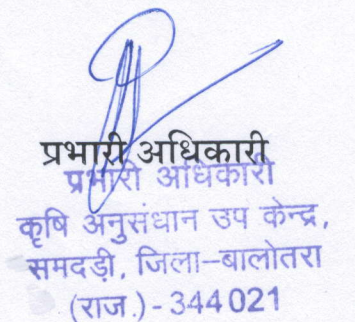 प्रभारी अधिकारी
प्रभारी अधिकारी
कृषि अनुसंधान उप केन्द्र,
समदड़ी, जिला–बालोतरा
(राज.) - 344021